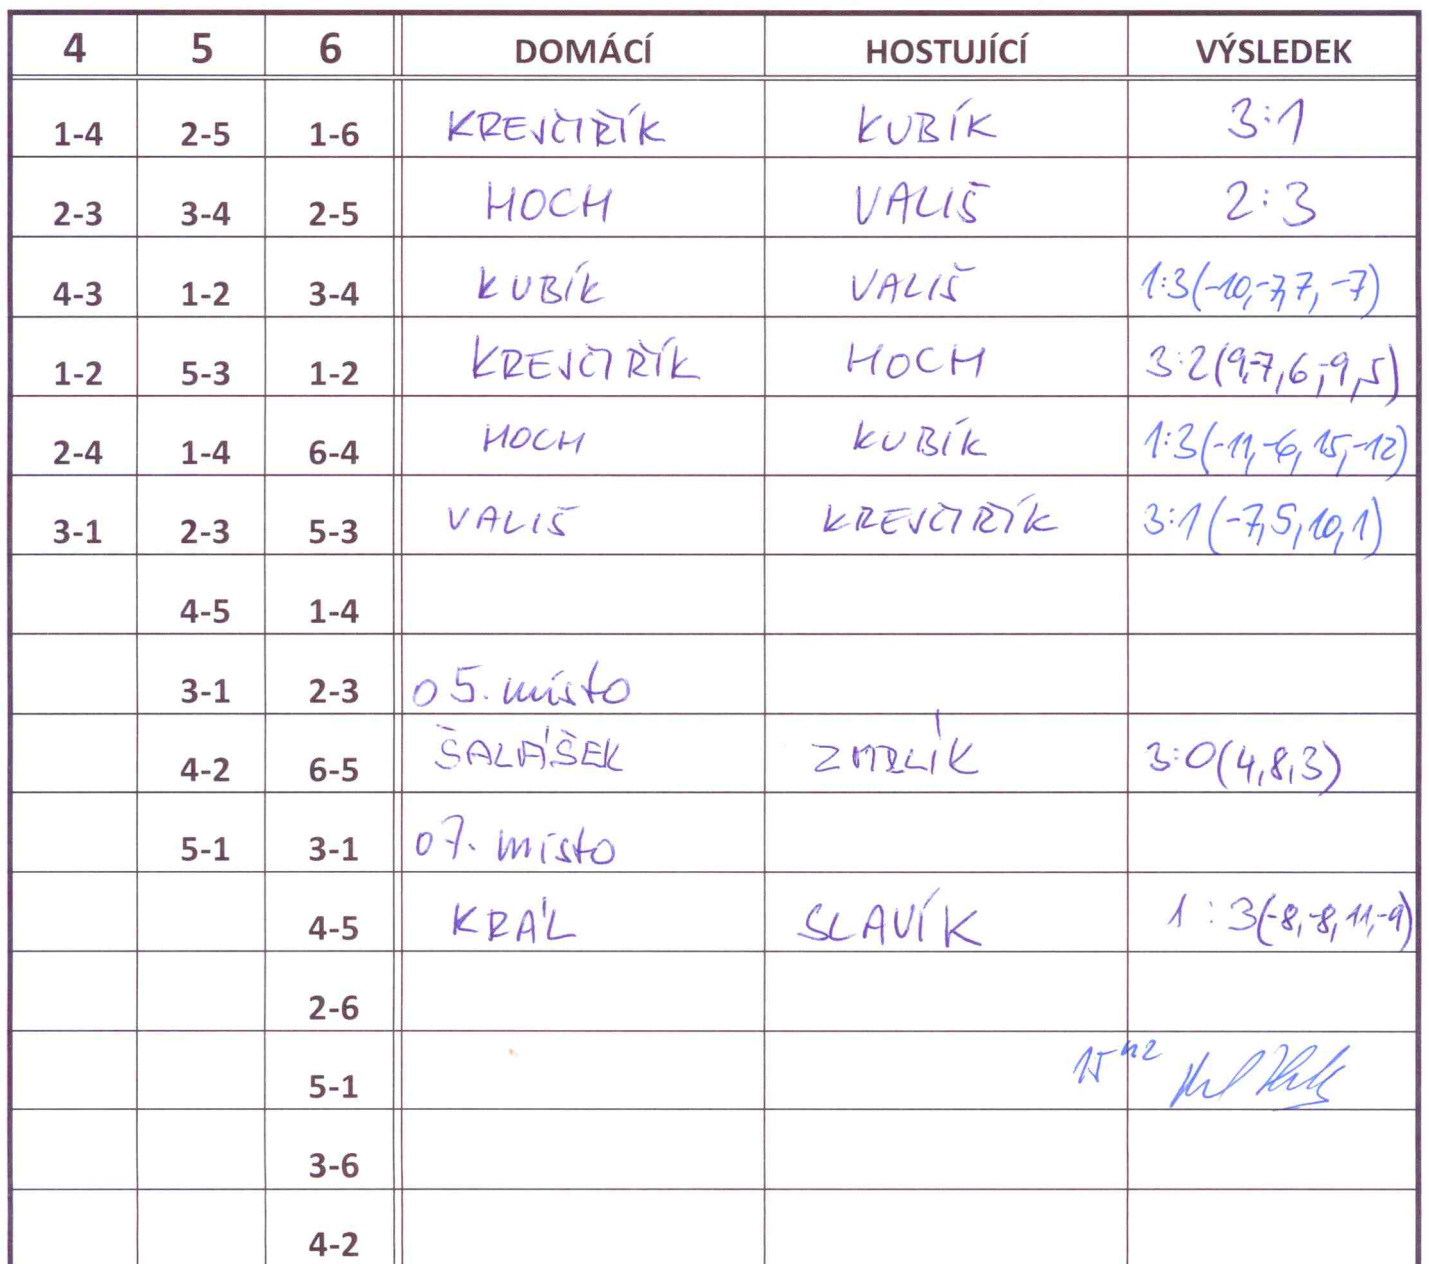 4 5 6 DOMÁCÍ HOSTUJÍCÍ VÝSLEDEK
1-4 2-5 1-6 KREJČIŘÍK KUBÍK 3:1
2-3 3-4 2-5 HOCH VALIŠ 2:3
4-3 1-2 3-4 KUBÍK VALIŠ 1:3(-10,-7,7,-7)
1-2 5-3 1-2 KREJČIŘÍK HOCH 3:2(9,-7,6,-9,5)
2-4 1-4 6-4 HOCH KUBÍK 1:3(-11,-6,15,-12)
3-1 2-3 5-3 VALIŠ KREJČIŘÍK 3:1(-7,5,10,1)
4-5 1-4
3-1 2-3 o 5. místo
4-2 6-5 ŠALÁŠEK ZMRLÍK 3:0(4,8,3)
5-1 3-1 o 7. místo
4-5 KRÁL SLAVÍK 1:3(-8,-8,11,-9)
2-6
15 42
5-1
3-6
4-2